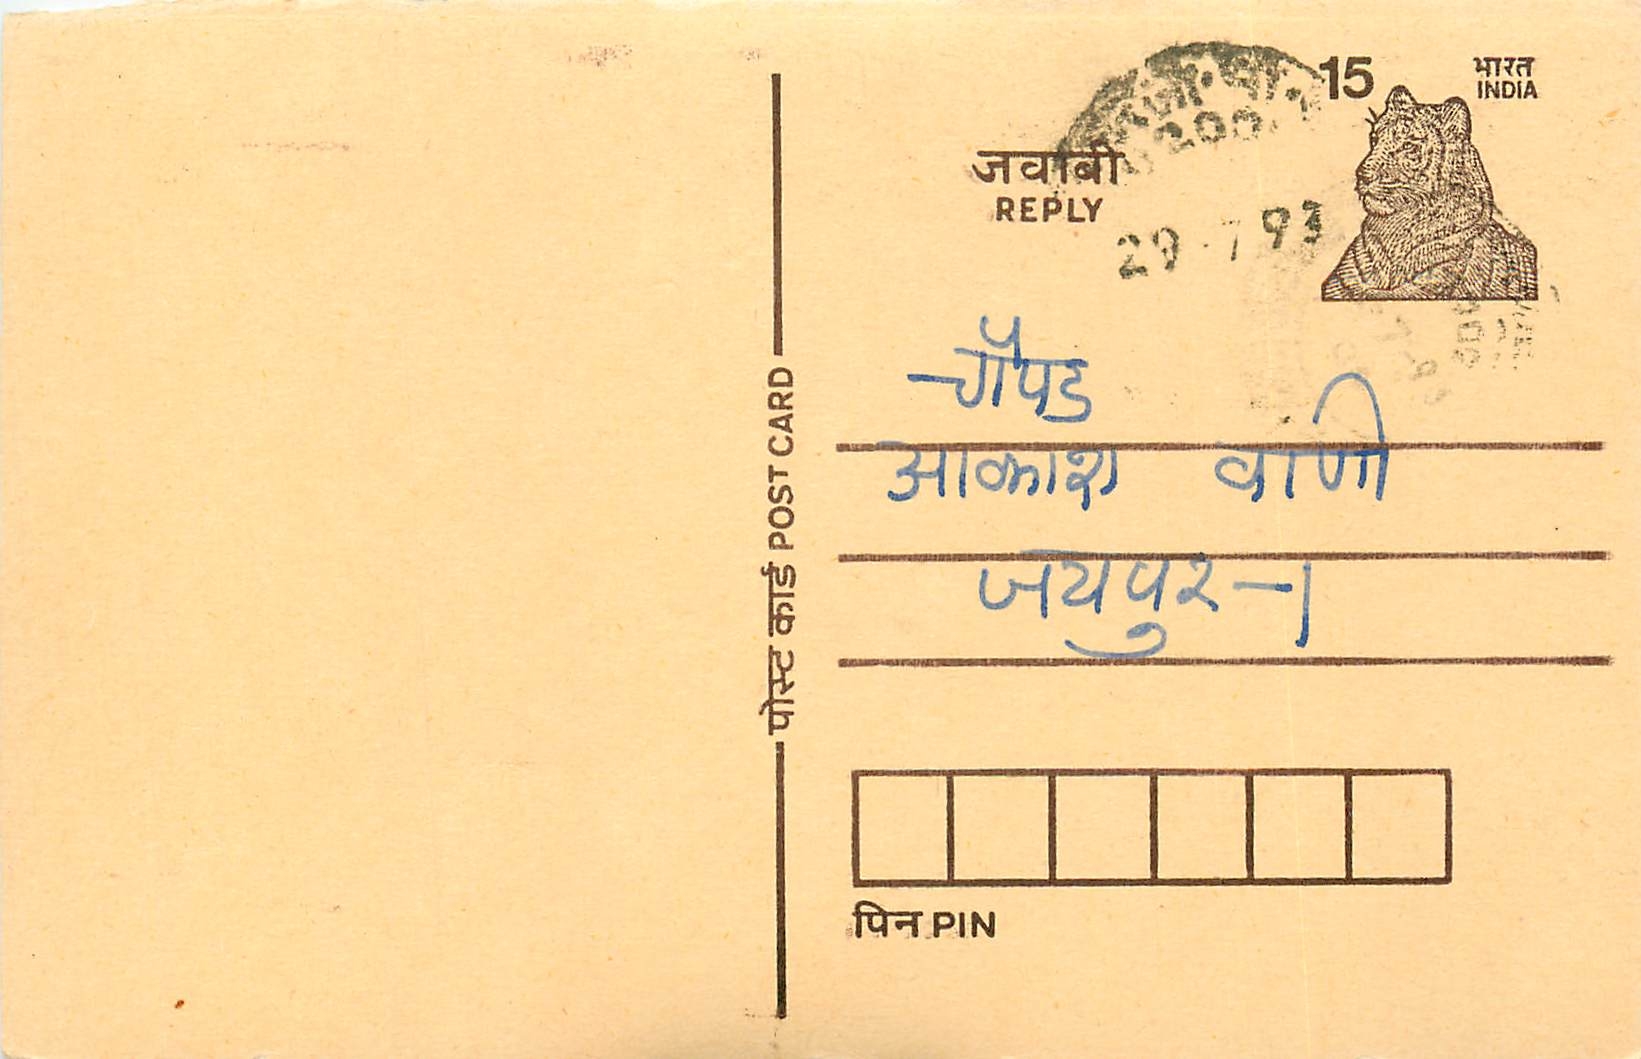 15 भारत
INDIA
जवाबी
REPLY
29 7 93
चौपड
आकाश वाणी
जयपुर-1
पोस्ट कार्ड POST CARD
पिन PIN